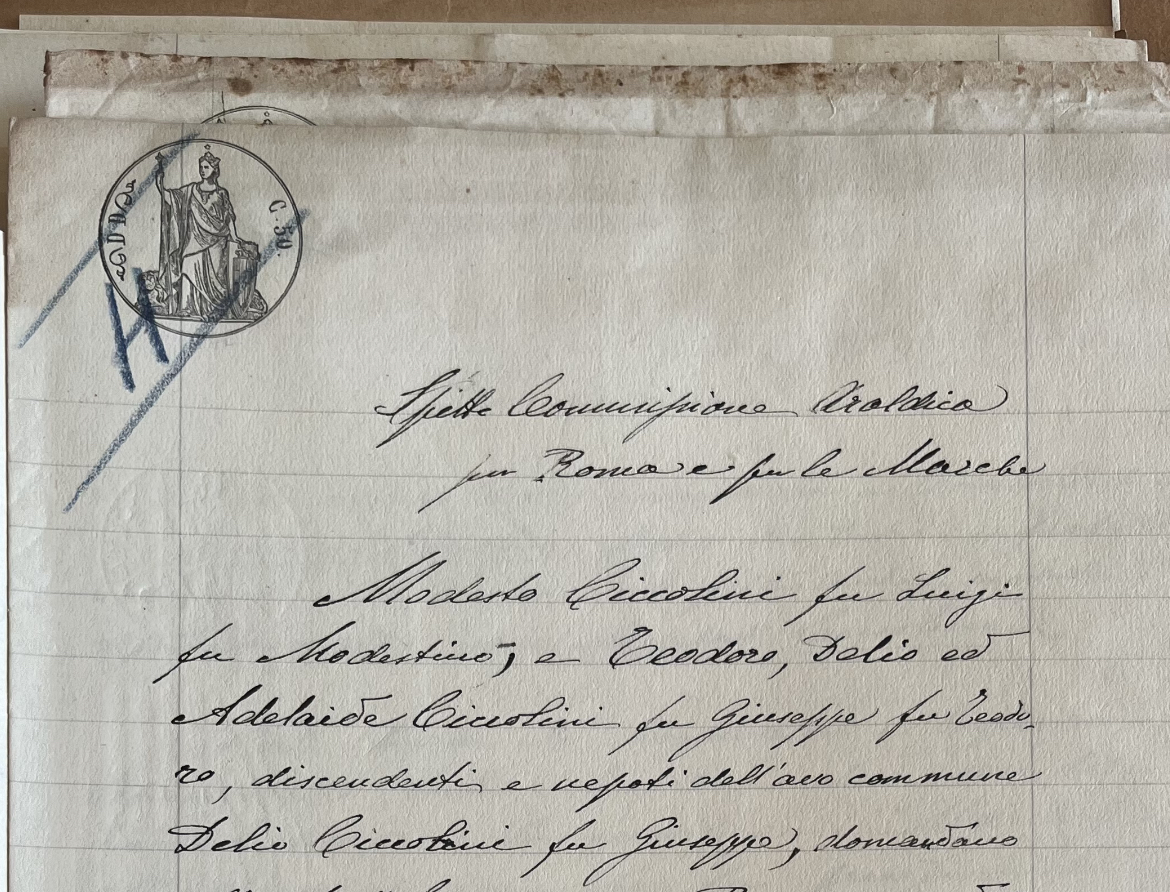 C. 50.
H
Spett. Commissione Araldica
per Roma e per le Marche
Modesto Ciccolini fu Luigi
fu Modestino, e Teodoro, Delio ed
Adelaide Ciccolini fu Giuseppe fu Teodo-
ro, discendenti e nepoti dell'avo commune
Delio Ciccolini fu Giuseppe, domandano